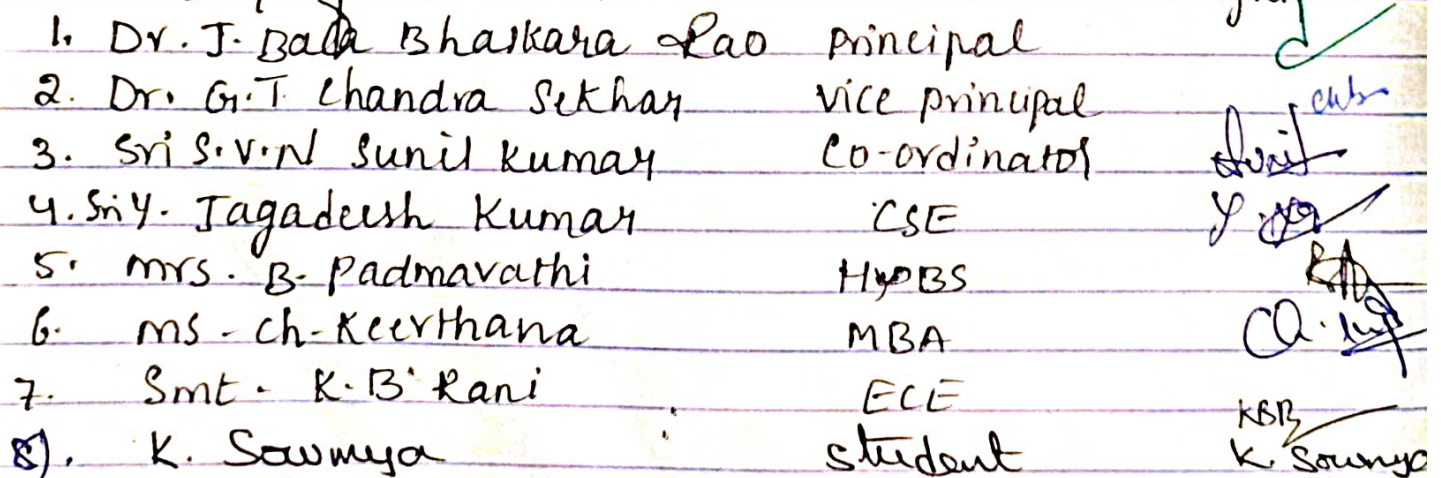 1. Dr. J. Bala Bhaskara Rao Principal
2. Dr. G.T. Chandra Sekhar vice principal
3. Sri S.V.N Sunil Kumar Co-ordinator
4. Sri Y. Jagadeesh Kumar CSE
5. mrs. B. Padmavathi BS
6. ms - ch - Keerthana MBA
7. Smt - K.B. Rani ECE KBR
8). K. Sowmya student K. Sowmya